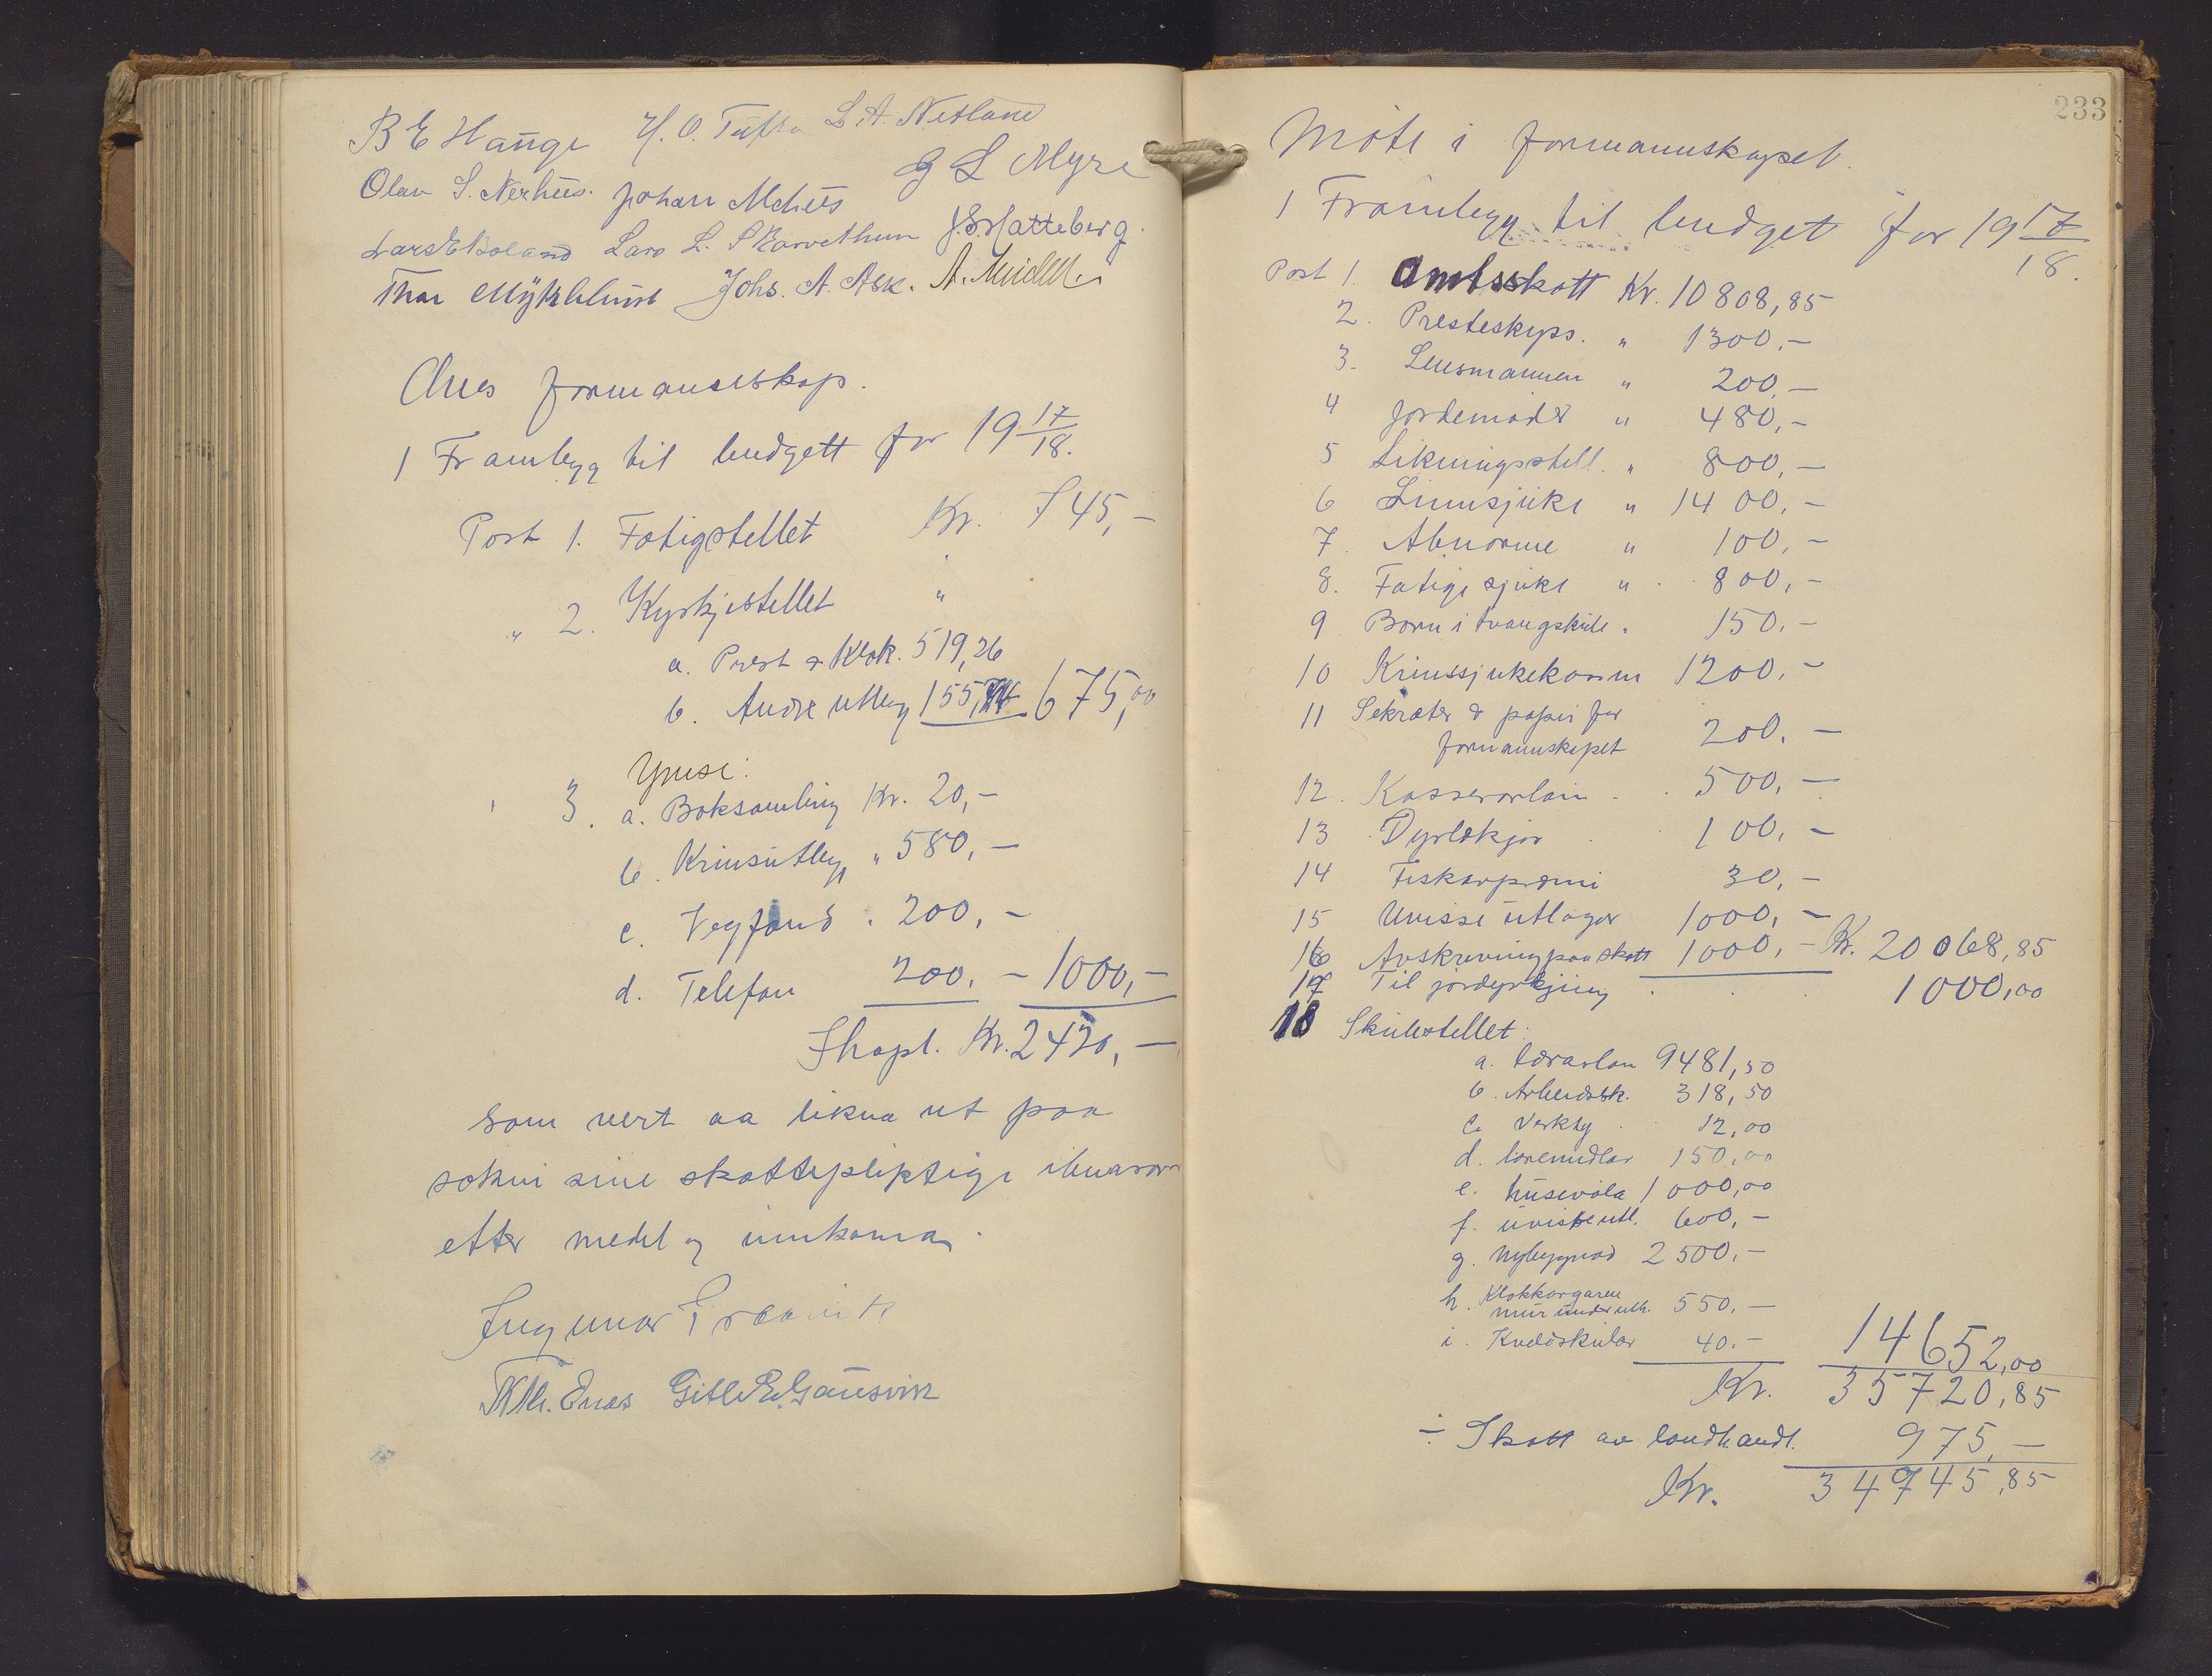 B E Hauge H. O. Tufta L A. Netland
Olav S. Nerhus. Johan Mehus G L Myre
Lars E Lars L. Skarvethun J. S. Hatteberg.
Thor Myklebust Johs. A. Ask.
formannskap.
1 Framlegg til budgett for 19 17/18.
Post 1. Fatigstellet Kr. 745,-
" 2. Kyrkjestellet "
a. Prest & Klok. 519,26
b. Andre utlegg 155,74 675,00
Ymse:
3. a. Boksamling Kr. 20,-
b. Krinsutlegg " 580,-
c. Vegfond " 200,-
d. Telefon 200,- 1000,-
Ihopl. Kr. 2420,-
som vert aa likna ut paa
sokni sine skattepliktige ibuarar
etter medel og innkoma.
Ingmar
Enæs Gitle E. Gausvik
233
Møte i formannskapet.
1 Framlegg til budget for 19 17/18.
Post 1. Amtsskatt Kr. 10808,85
2. Presteskyss. " 1300,-
3. Lensmannen " 200,-
4 Jordemødr " 480,-
5 Likningsstell. " 800,-
6 Sinnsjuke " 1400,-
7. Abnorme " 100,-
8. Fatige sjuke " 800,-
9 Born i tvangskule " 150,-
10 Krinssjukekassa 1200,-
11 Sekretær & papir for
formannskapet 200,-
12. Kassererløn 500,-
13 Dyrlækjar 100,-
14 Fiskarpremi 30,-
15 Uvisse utlogor 1000,-
16 Avskrivning paa skatt 1000,- Kr. 20068,85
17 Til jorddyrkjing 1000,00
18 Skulestellet:
a. Lærarløn 9481,50
b. Arbeidssk. 318,50
c. Verkty 12,00
d. læremidlar 150,00
e. husevøla 1000,00
f. uvisse utl. 600,-
g. Nybyggnad 2500,-
h. Klokkargaren
mur under uth. 550,-
i. Kveldskular 40,- 14652,00
Kr. 35720,85
÷ Skatt av landhandl. 975,-
Kr. 34745,85